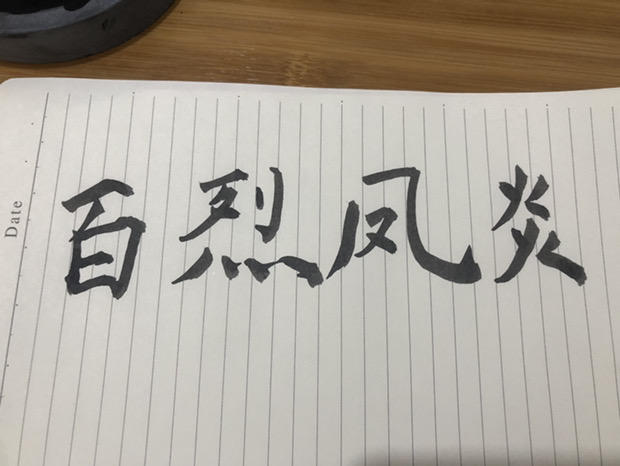 Date
百烈凤炎